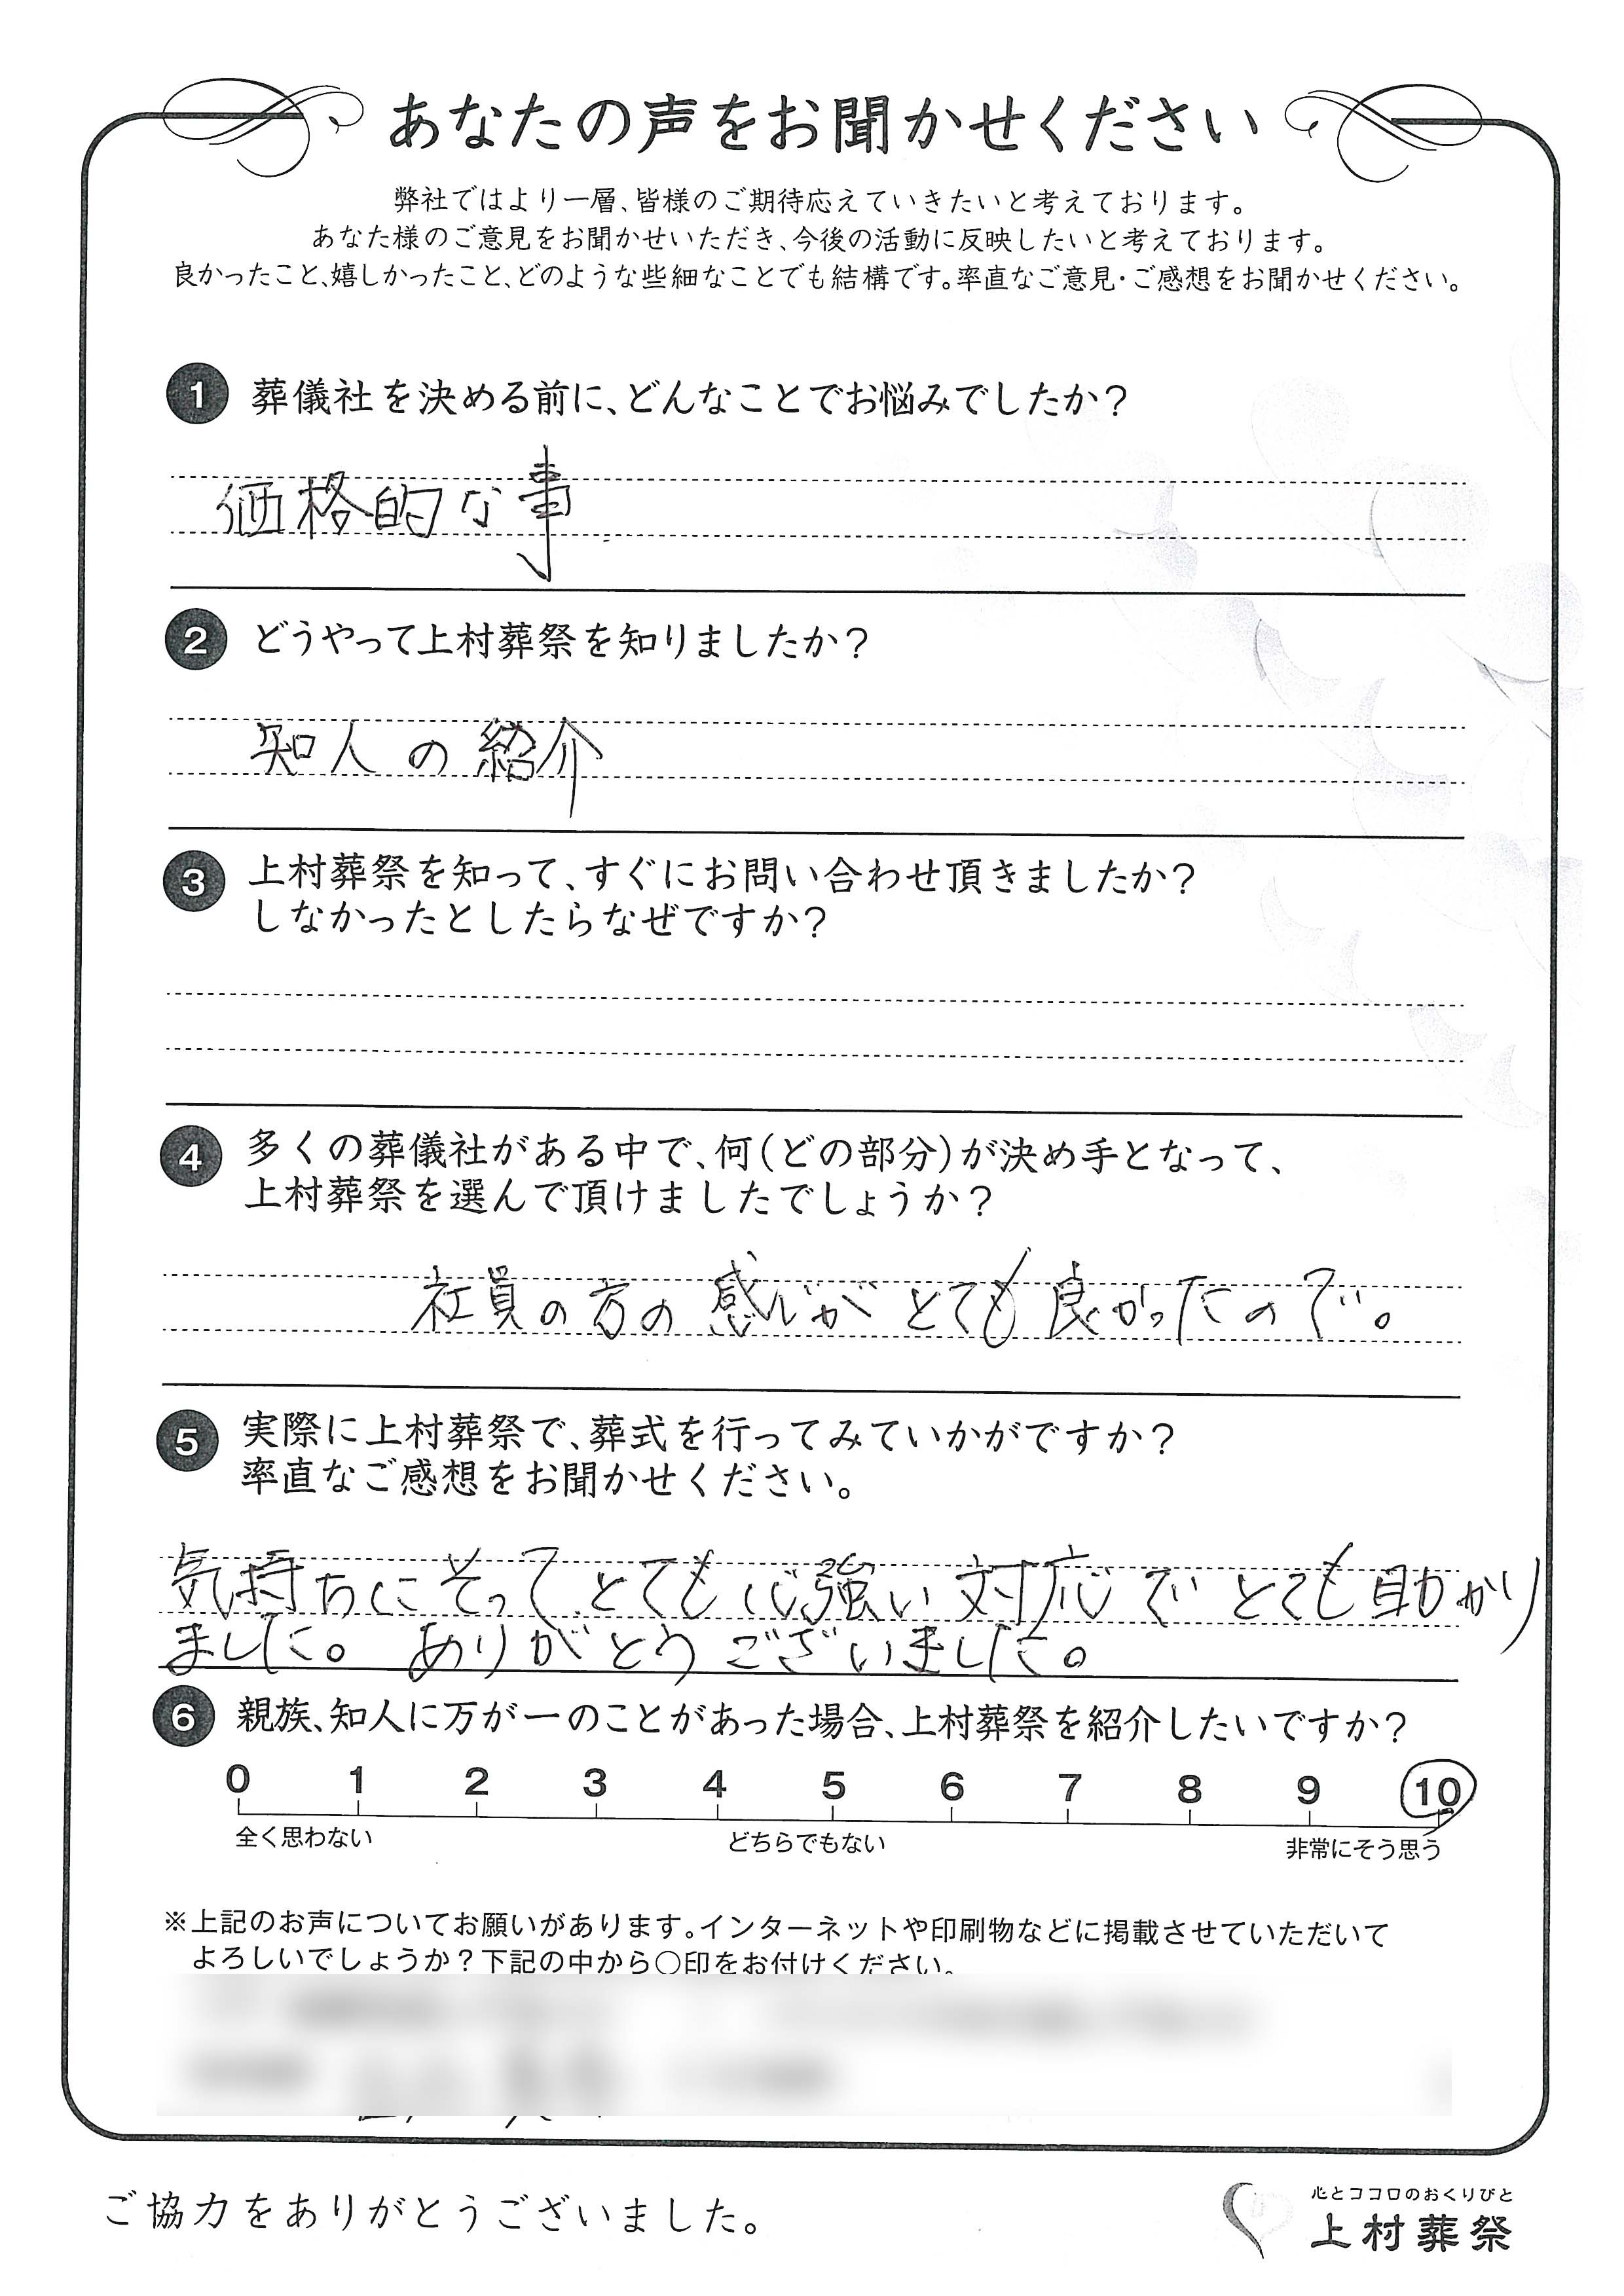 あなたの声をお聞かせください
弊社ではより一層、皆様のご期待応えていきたいと考えております。
あなた様のご意見をお聞かせいただき、今後の活動に反映したいと考えております。
良かったこと、嬉しかったこと、どのような些細なことでも結構です。率直なご意見・ご感想をお聞かせください。
1 葬儀社を決める前に、どんなことでお悩みでしたか?
価格的な事
2 どうやって上村葬祭を知りましたか?
知人の紹介
3 上村葬祭を知って、すぐにお問い合わせ頂きましたか?
しなかったとしたらなぜですか?
4 多くの葬儀社がある中で、何(どの部分)が決め手となって、
上村葬祭を選んで頂けましたでしょうか?
社員の方の感じがとても良かったので。
5 実際に上村葬祭で、葬式を行ってみていかがですか?
率直なご感想をお聞かせください。
気持ちにそってとても心強い対応でとても助かり
ました。ありがとうございました。
6 親族、知人に万が一のことがあった場合、上村葬祭を紹介したいですか?
0 1 2 3 4 5 6 7 8 9 10
全く思わない どちらでもない 非常にそう思う
※上記のお声についてお願いがあります。インターネットや印刷物などに掲載させていただいて
よろしいでしょうか?下記の中から○印をお付けください。
ご協力をありがとうございました。
心とココロのおくりびと
上村葬祭